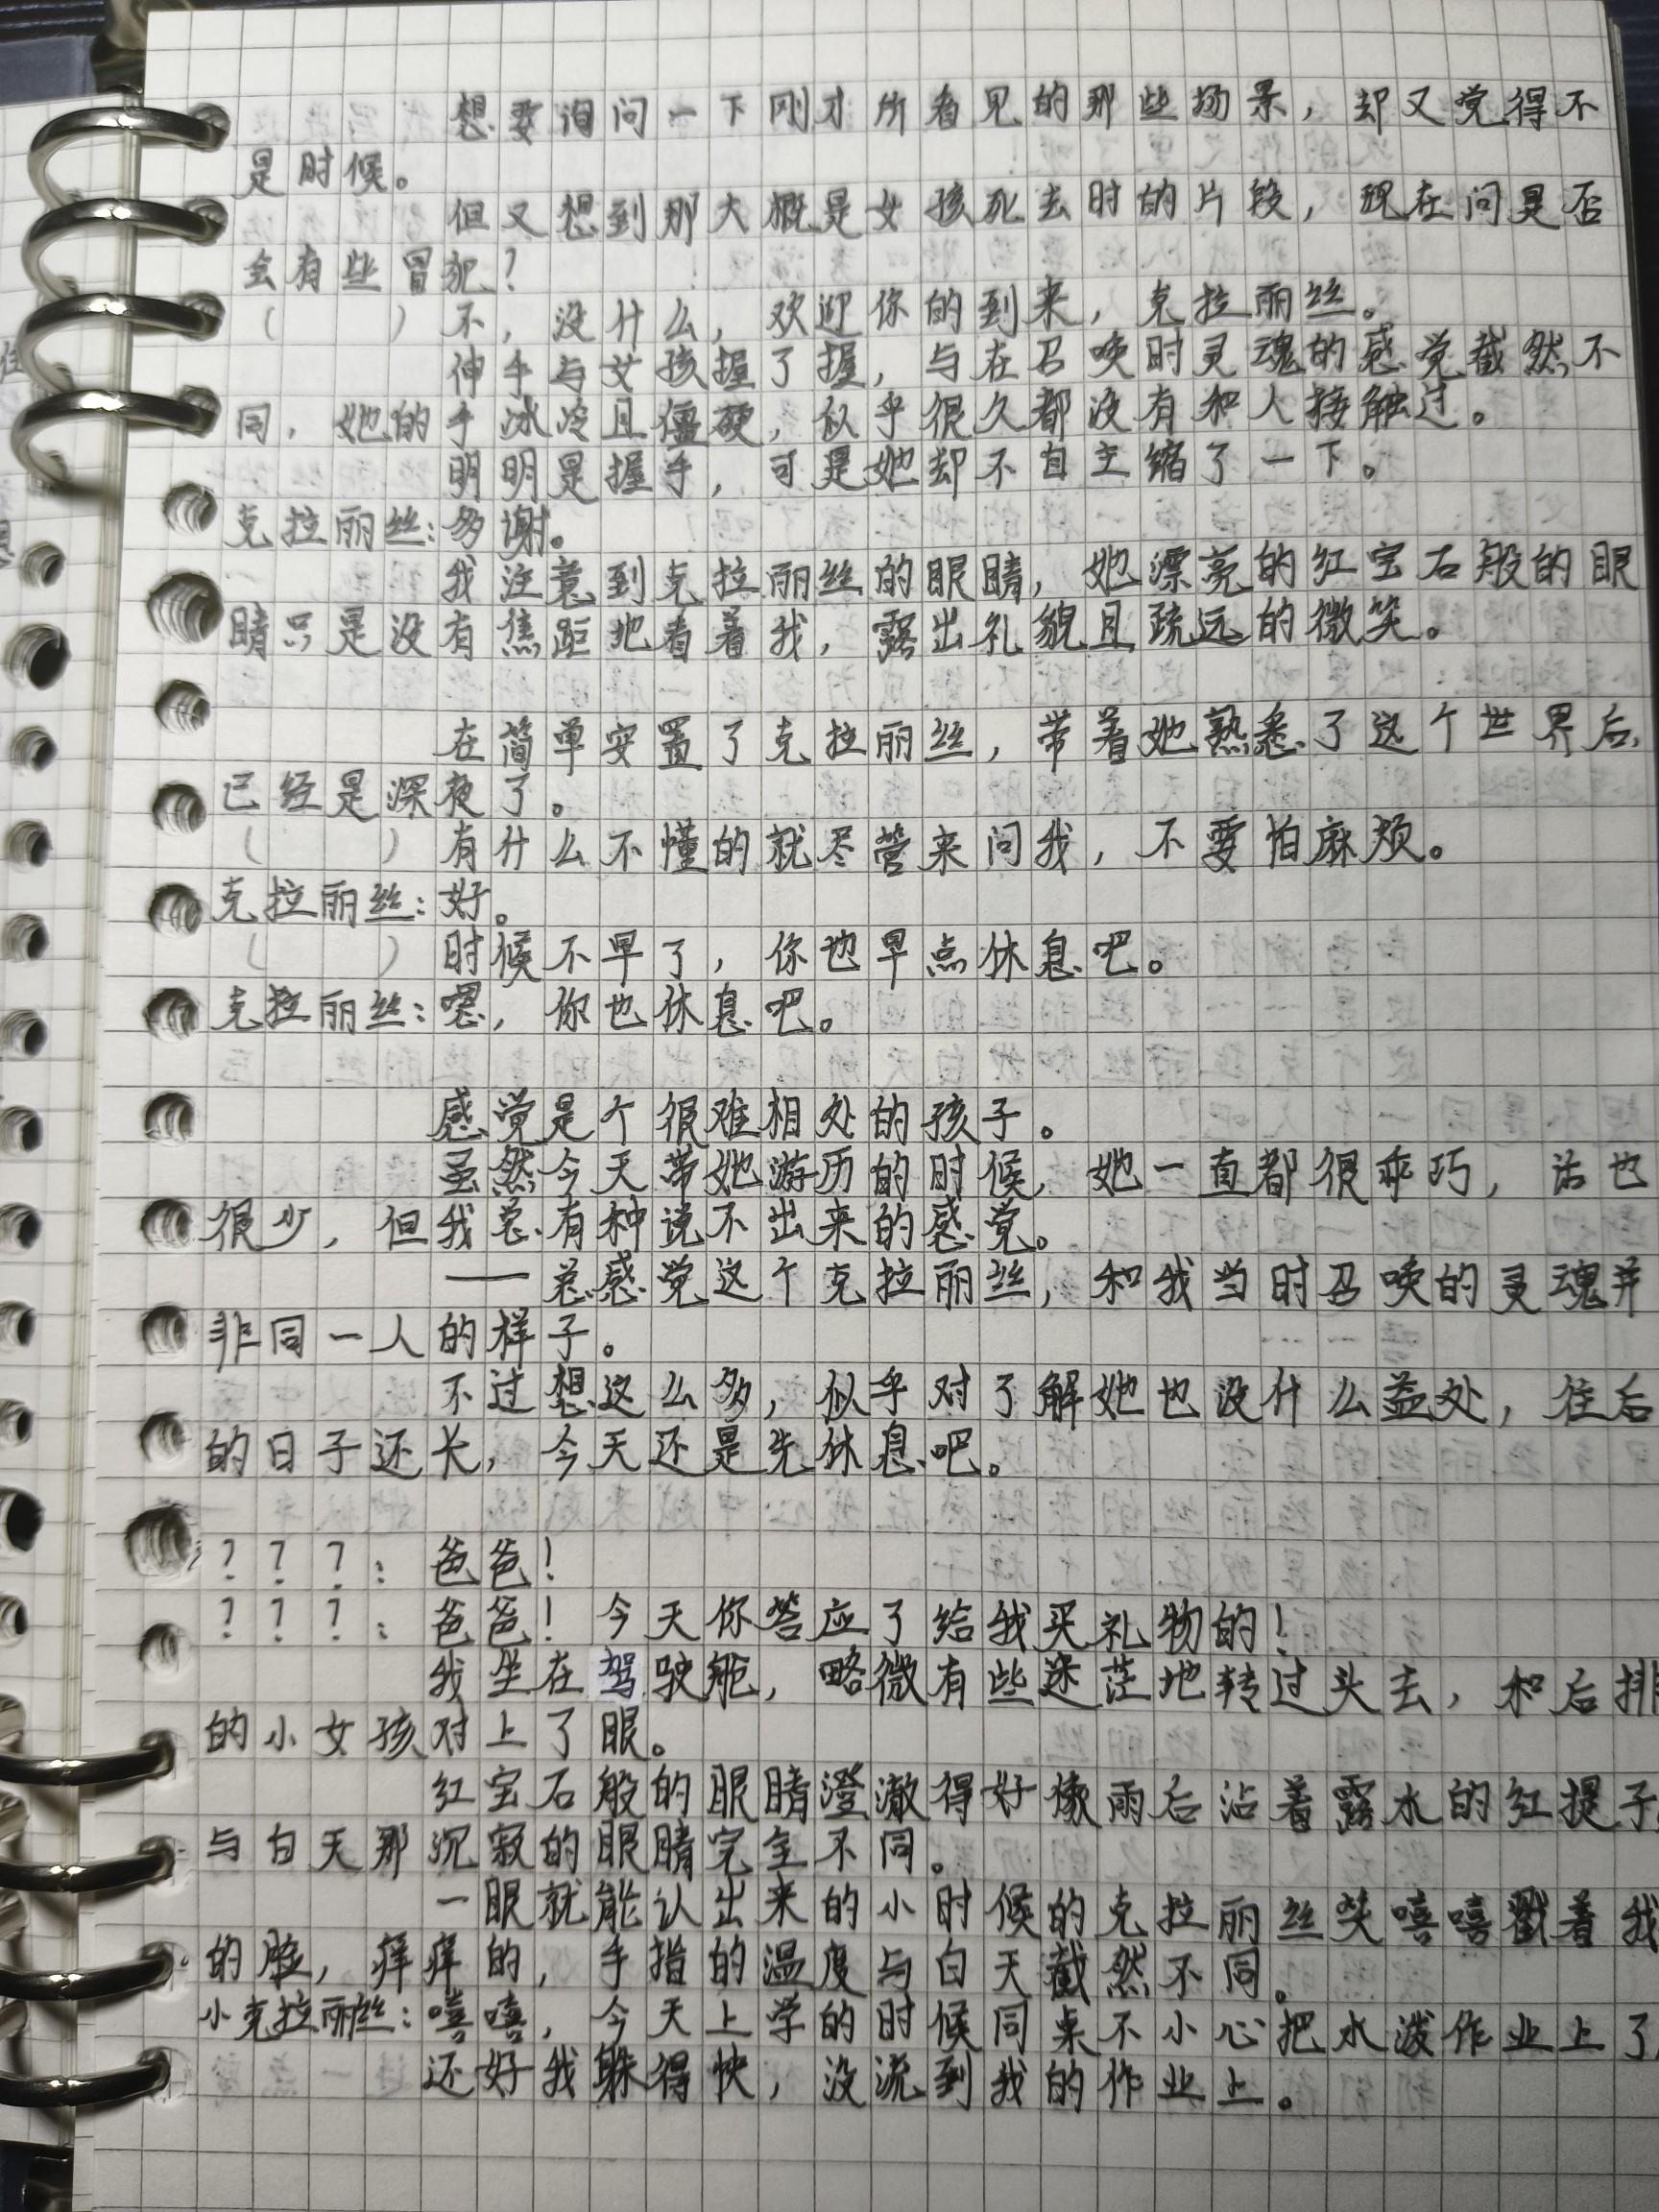 想要询问一下刚才所看见的那些场景，却又觉得不
是时候。
但又想到那大概是女孩死去时的片段，现在问是否
会有些冒犯？
（　　）不，没什么，欢迎你的到来，克拉丽丝。
伸手与女孩握了握，与在召唤时灵魂的感觉截然不
同，她的手冰冷且僵硬，似乎很久都没有和人接触过。
明明是握手，可是她却不自主缩了一下。
克拉丽丝：多谢。
我注意到克拉丽丝的眼睛，她漂亮的红宝石般的眼
睛只是没有焦距地看着我，露出礼貌且疏远的微笑。
在简单安置了克拉丽丝，带着她熟悉了这个世界后，
已经是深夜了。
（　　）有什么不懂的就尽管来问我，不要怕麻烦。
克拉丽丝：好。
（　　）时候不早了，你也早点休息吧。
克拉丽丝：嗯，你也休息吧。
感觉是个很难相处的孩子。
虽然今天带她游历的时候，她一直都很乖巧，话也
很少，但我总有种说不出来的感觉。
——总感觉这个克拉丽丝，和我当时召唤的灵魂并
非同一人的样子。
不过想这么多，似乎对了解她也没什么益处，往后
的日子还长，今天还是先休息吧。
？？？：爸爸！
？？？：爸爸！今天你答应了给我买礼物的！
我坐在驾驶舱，略微有些迷茫地转过头去，和后排
的小女孩对上了眼。
红宝石般的眼睛澄澈得好像雨后沾着露水的红提子，
与白天那沉寂的眼睛完全不同。
一眼就能认出来的小时候的克拉丽丝笑嘻嘻戳着我
的脸，痒痒的，手指的温度与白天截然不同。
小克拉丽丝：嘻嘻，今天上学的时候同桌不小心把水泼作业上了，
还好我躲得快，没流到我的作业上。